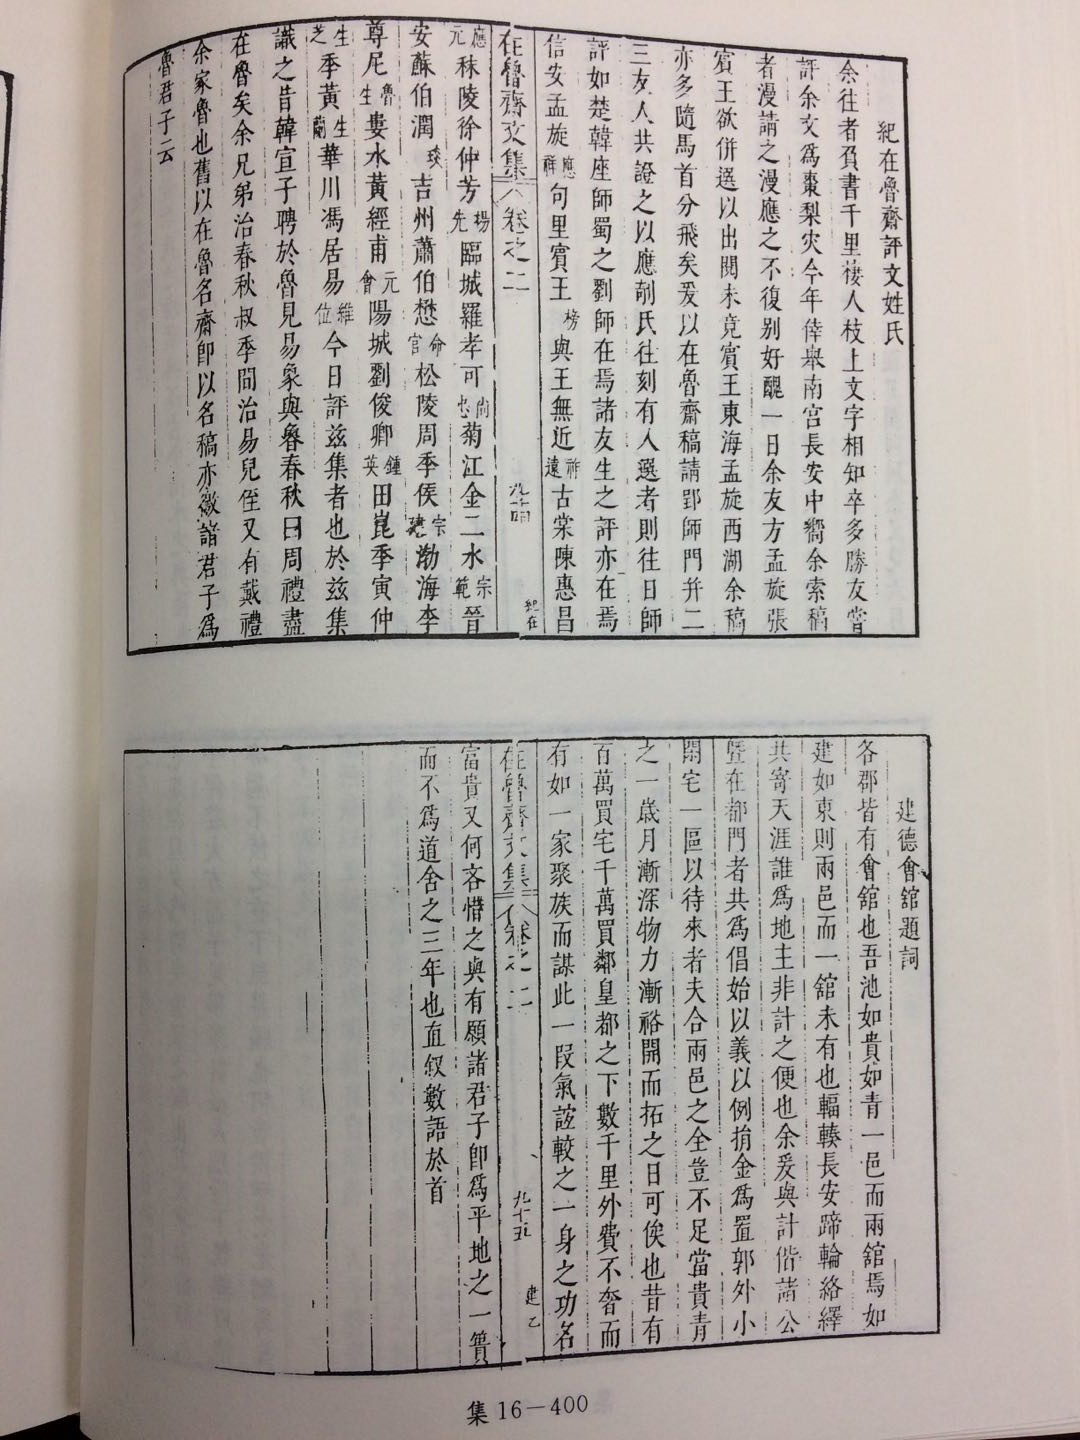 紀在魯齋評文姓氏
余往者負書千里棲人枝上文字相知卒多勝友嘗
評余文爲棗梨灾今年倖舉南宫長安中嚮余索稿
者漫請之漫應之不復别好醜一日余友方孟旋張
賓王欲併選以出閱未竟賓王東海孟旋西湖余稿
亦多隨馬首分飛矣爰以在魯齋稿請郢師門并二
三友人共證之以應剞氏徃刻有人選者則往日師
評如楚韓座師蜀之劉師在焉諸友生之評亦在焉
信安孟旋應祥句里賓王榜與王無近祚遠古棠陳惠昌
在魯齋文集 卷之二 九十四 紀在
應元秣陵徐仲芳楊先臨城羅孝可尚也菊江金二水宗範晉
安蘇伯潤琰吉州蕭伯懋命官松陵周季侯宗建渤海李
尊尼魯生婁水黃經甫元會陽城劉俊卿鍾英田崑季寅仲
生芝季黃生蘭華川馮居易維位今日評兹集者也於兹集
識之昔韓宣子聘於魯見易象與魯春秋曰周禮盡
在魯矣余兄弟治春秋叔季間治易兒侄又有戴禮
余家魯也舊以在魯名齋卽以名稿亦徵諸君子爲
魯君子云
建德會舘題詞
各郡皆有會舘也吾池如貴如青一邑而兩舘焉如
建如東則兩邑而一舘未有也輻輳長安蹄輪絡繹
共寄天涯誰爲地主非計之便也余爰與計偕諸公
暨在都門者共爲倡始以義以例捐金爲置郭外小
閒宅一區以待來者夫合兩邑之全豈不足當貴青
之一歲月漸深物力漸裕開而拓之日可俟也昔有
百萬買宅千萬買鄰皇都之下數千里外費不奢而
有如一家聚族而謀此一叚氣誼較之一身之功名
在魯齋文集 卷之二 九十五 建乙
富貴又何吝惜之與有願諸君子卽爲平地之一簣
而不爲道舍之三年也直叙數語於首
集 16－400